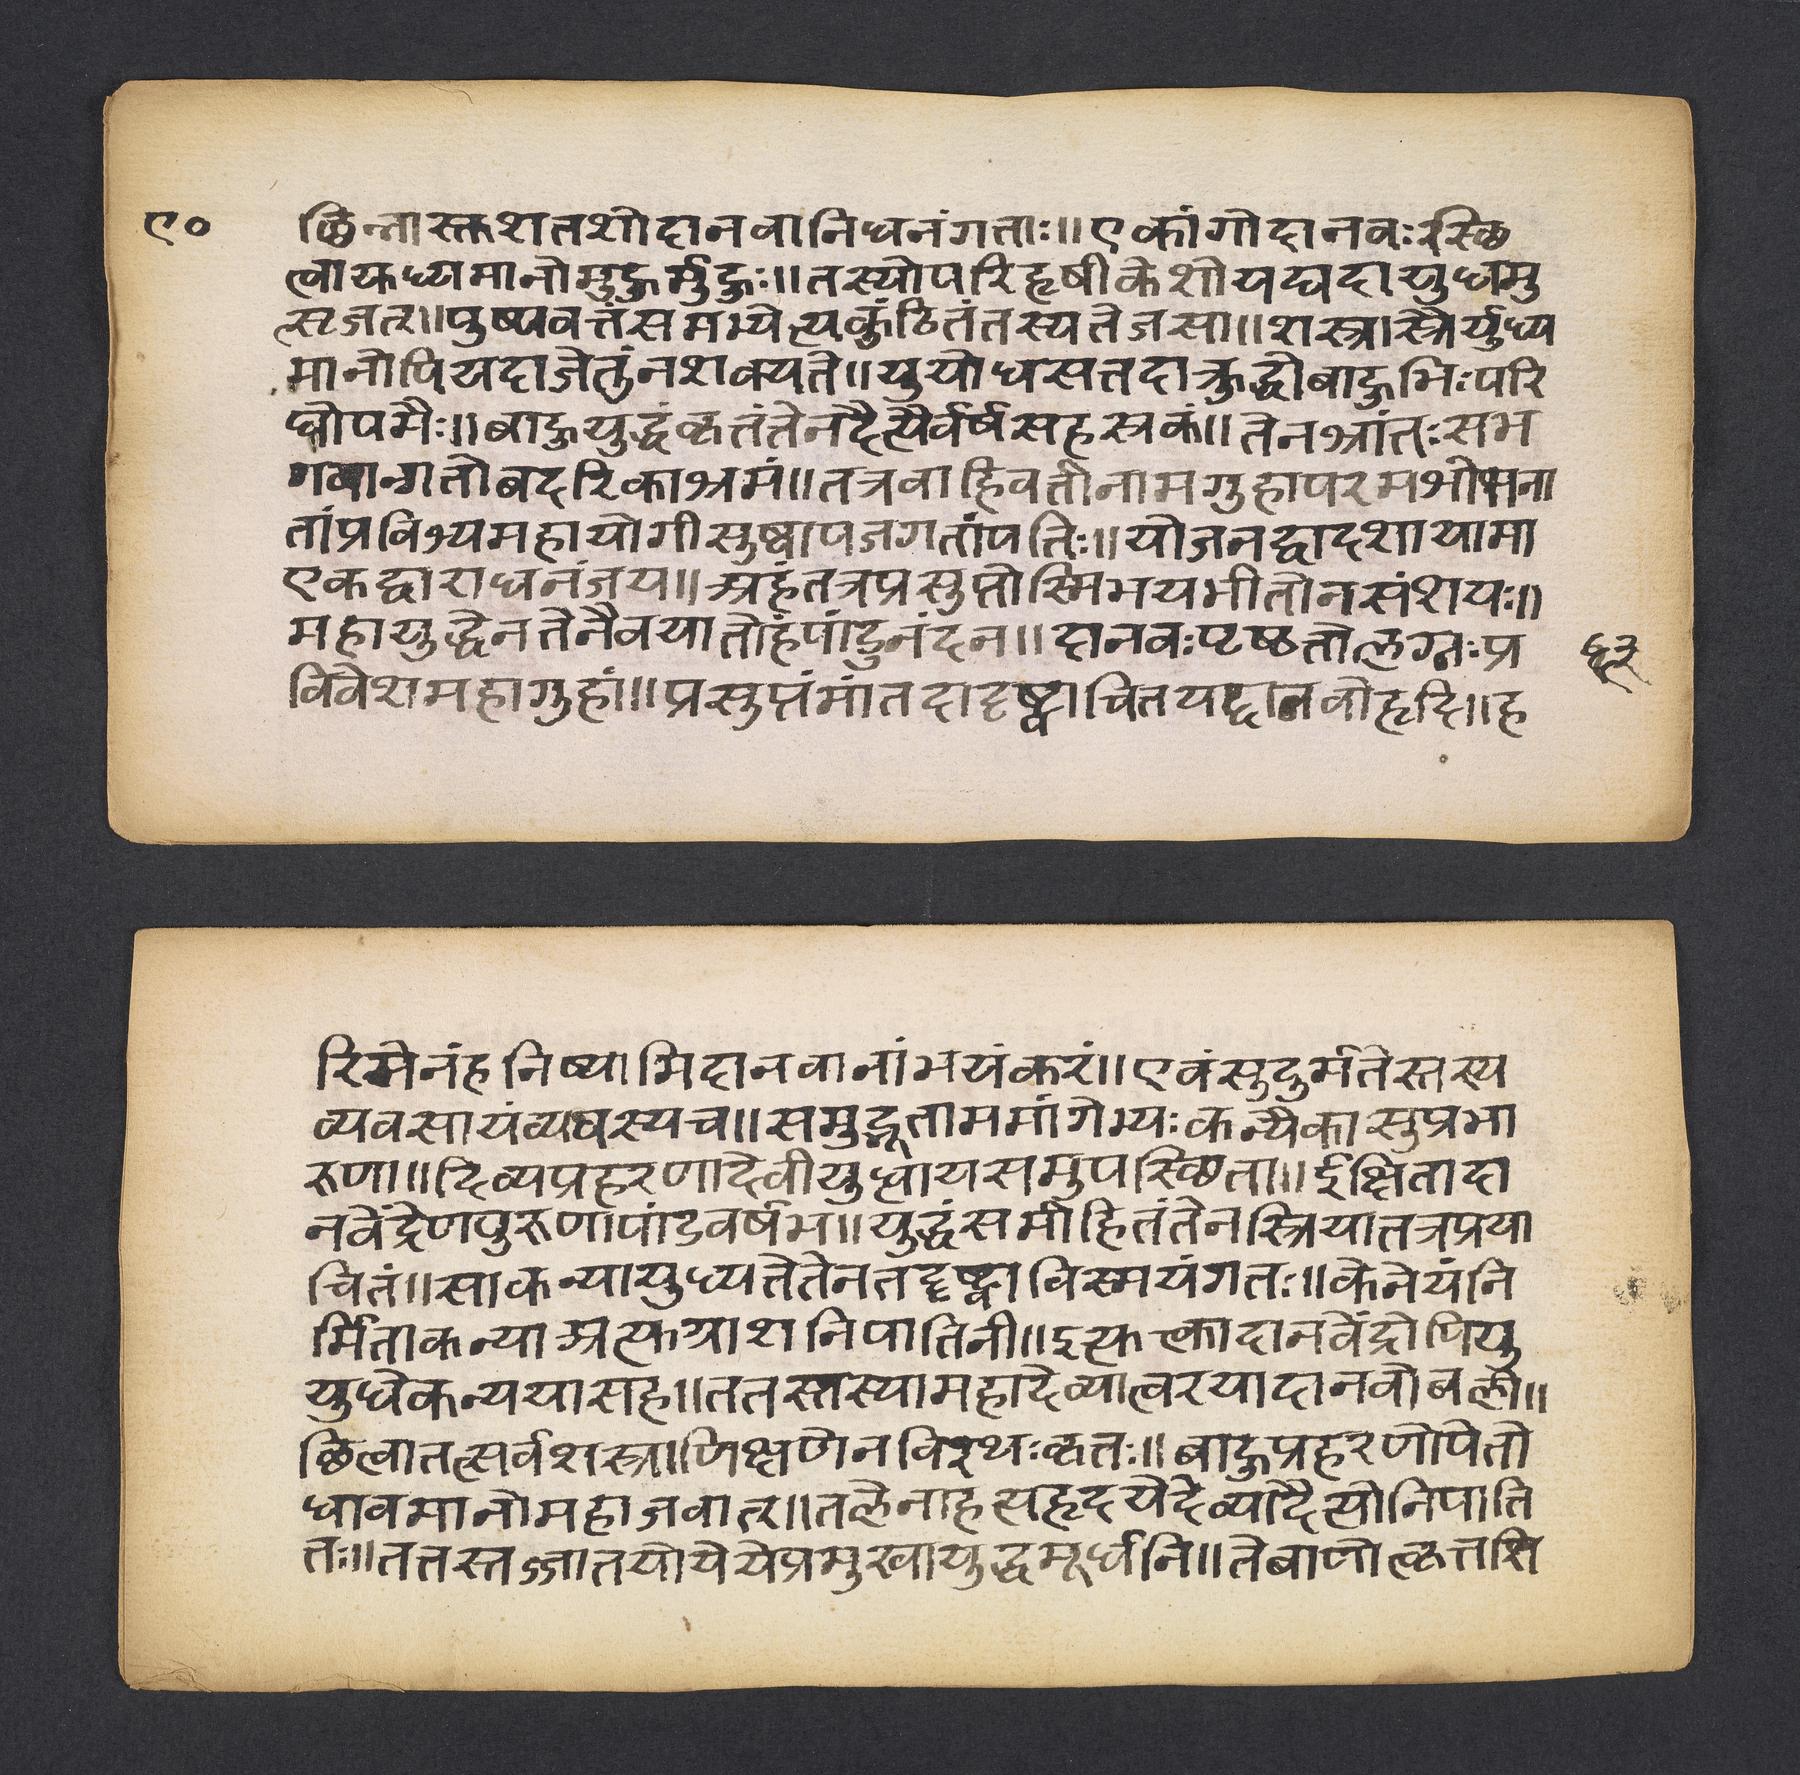 ए०
छिन्नास्तुशतशोदानवानिधनंगताः॥एकांगोदानवःस्थि
त्वायुध्यमानोमुहुर्मुहुः॥तस्योपरिहृषीकेशोयद्यदायुधमु
त्सृजत्॥पुष्पवत्तंसमभ्येत्यकुंठितंतस्यतेजसा॥शस्त्रास्त्रैर्युध्य
मानोपियदाजेतुंनशक्यते॥युयोधसत्तदाक्रुद्धोबाहुभिःपरि
घोपमैः॥बाहुयुद्धंकृतंतेनदैत्यैर्वर्षसहस्रकं॥तेनश्रांतःसभ
गवान्गतोबदरिकाश्रमं॥तत्रवाहिवतीनामगुहापरमशोभना
तांप्रविश्यमहायोगीसुष्वापजगतांपतिः॥योजनद्वादशायामा
एकद्वाराधनंजय॥अहंतत्रप्रसुप्तोस्मिभयभीतोनसंशयः॥
महायुद्धेनतेनैवयातोहंपांडुनंदन॥दानवःपृष्ठतोलग्नःप्र
६३
विवेशमहागुहां॥प्रसुप्तंमांतदादृष्ट्वाचितयद्दानवोहृदि॥ह
रिमेनंहनिष्यामिदानवानांभयंकरं॥एवंसुदुर्मतेस्तस्य
व्यवसायंव्यवस्यच॥समुद्भूताममांगेभ्यःकन्यैकासुप्रभा
रूणा॥दिव्यप्रहरणादेवीयुध्वायसमुपस्थिता॥ईक्षितादा
नवेंद्रेणपुरूणापांडवर्षभ॥युद्धंसमीहितंतेनस्त्रियातत्रप्रया
चितं॥साकन्यायुध्यतेतेनतदृष्ट्वाविस्मयंगतः॥केनेयंनि
र्मिताकन्याअत्युग्राशनिपातिनी॥इत्युत्कादानवेंद्रोपियु
युधेकन्ययासह॥ततस्तस्यामहादेव्यात्वरयादानवोबली॥
छित्वातत्सर्वशस्त्राणिक्षणेनविरथःकृतः॥बाहुप्रहरणोपेतो
धावमानोमहाजवात्॥तलेनाहत्यहृदयेदेव्यादैत्योनिपाति
तः॥ततस्तज्जातयोयेयेप्रमुखायुद्धमूर्धनि॥तेबाणोत्कृत्तशि